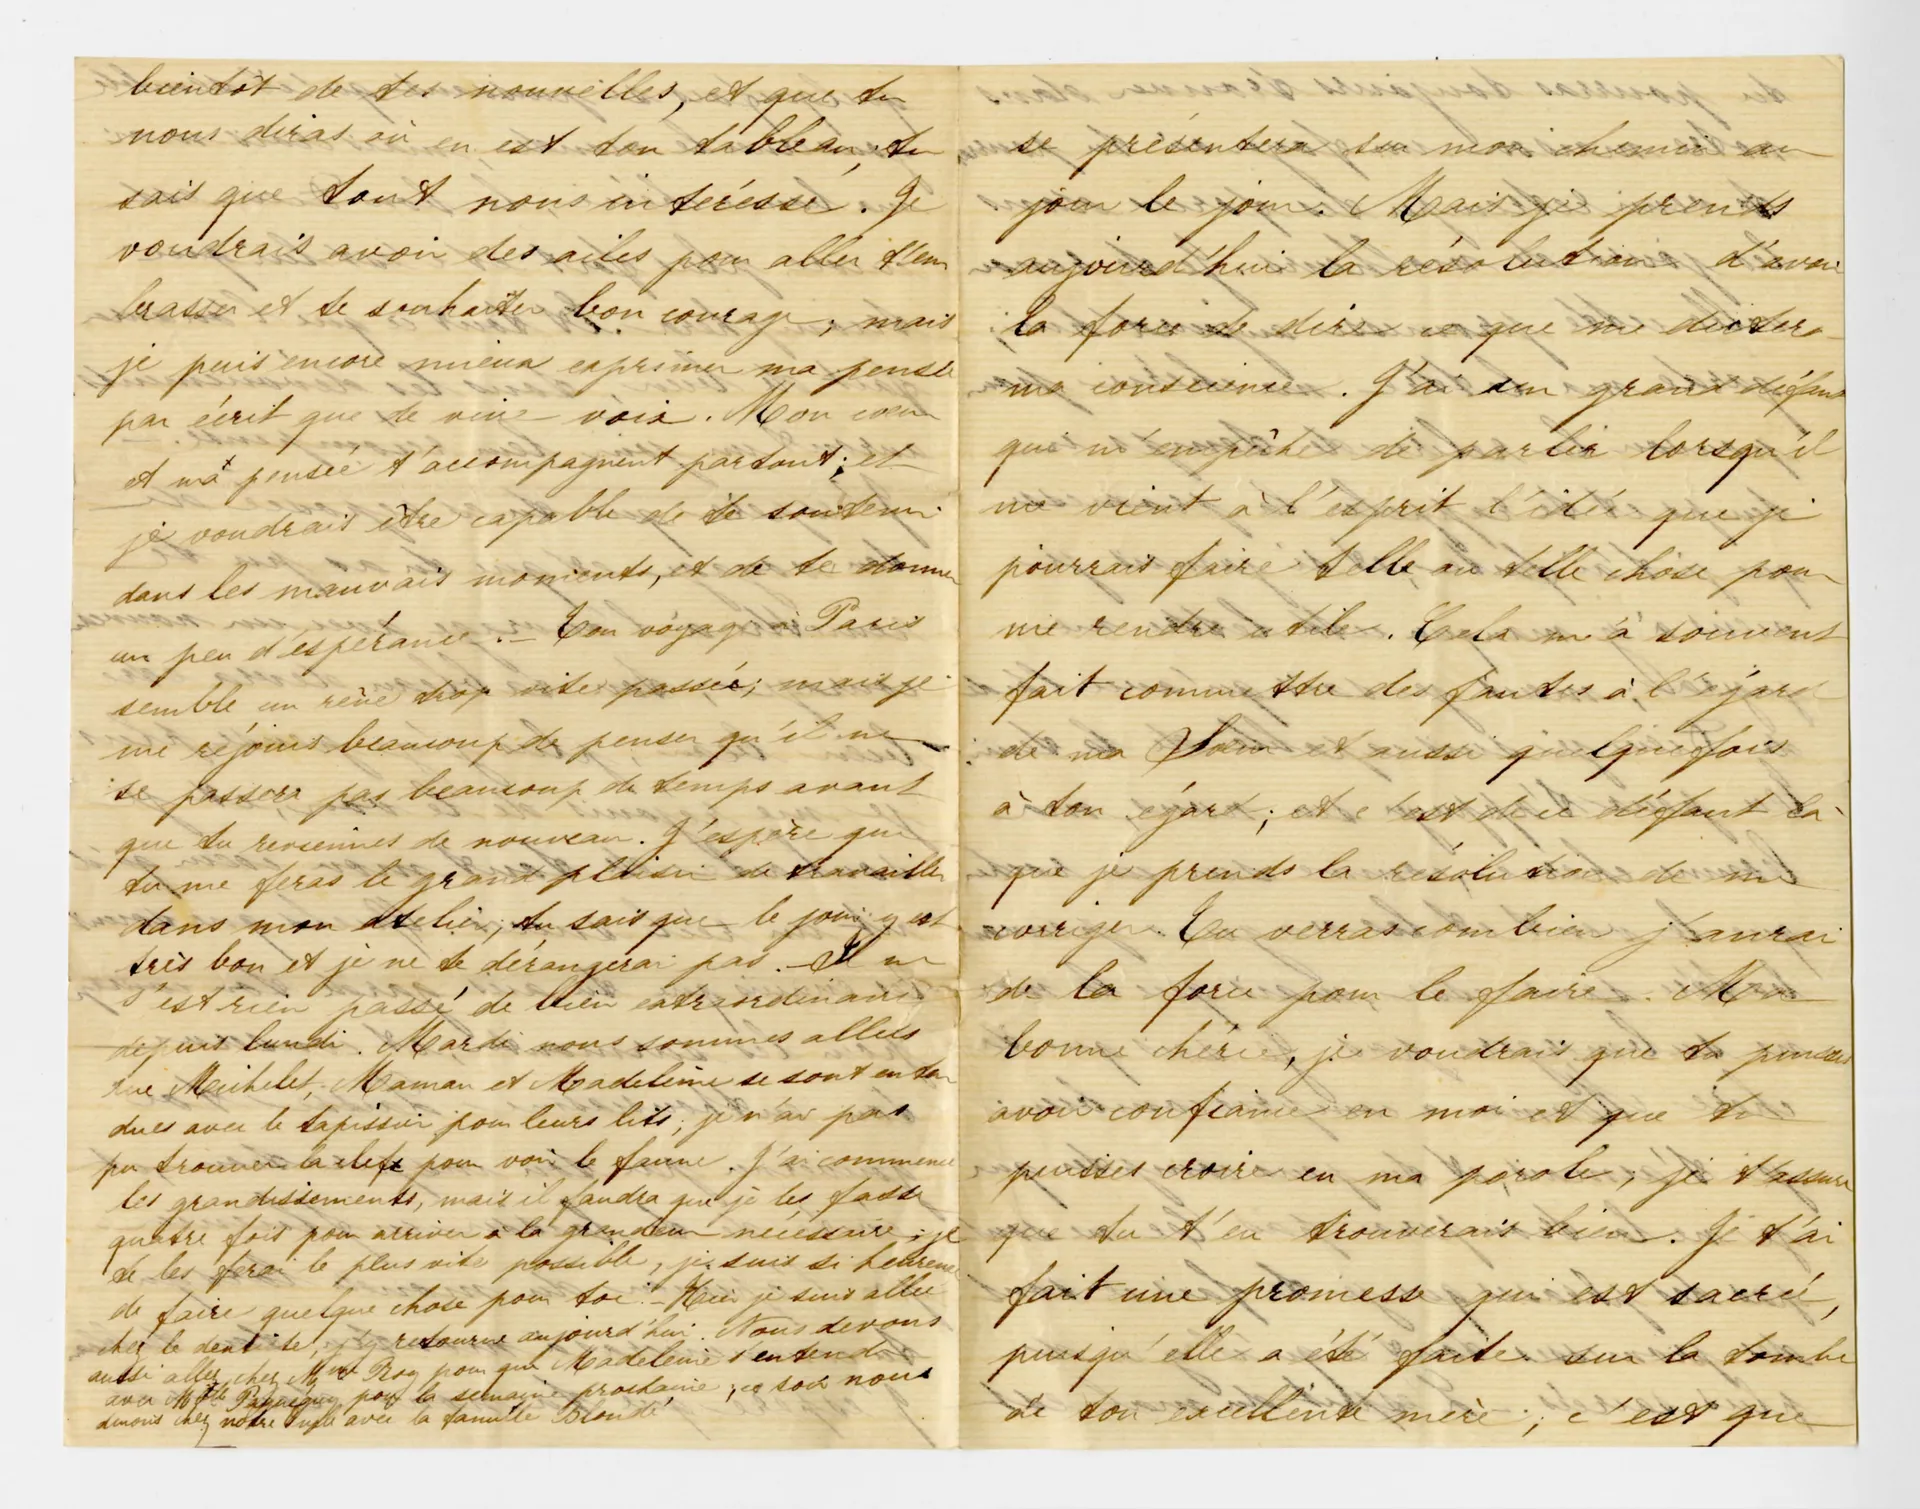 bientôt de tes nouvelles, et que tu
nous diras où en est ton tableau, tu
sais que tout nous intéresse. Je
voudrais avoir des ailes pour aller t'em
brasser et te souhaiter bon courage, mais
je puis encore mieux exprimer ma pensée
par écrit que de vive voix. Mon cœur
et ma pensée t'accompagnent partout; et
je voudrais être capable de te soutenir
dans les mauvais moments, et de te donner
un peu d'espérance. — Ton voyage à Paris
semble un rêve trop vite passé; mais je
me réjouis beaucoup de penser qu'il ne
se passera pas beaucoup de temps avant
que tu reviennes de nouveau. J'espère que
tu me feras le grand plaisir de travailler
dans mon atelier; tu sais que le jour y est
très bon et je ne te dérangerai pas. — Il ne
s'est rien passé de bien extraordinaire
depuis lundi. Mardi nous sommes allées
rue Michelet, Maman et Madeleine se sont enten
dues avec le tapissier pour leurs lits; je n'ai pas
pu trouver la clef pour voir le faune. J'ai commencé
les grandissements, mais il faudra que je les fasse
quatre fois pour arriver à la grandeur nécessaire; je
te les ferai le plus vite possible, je suis si heureuse
de faire quelque chose pour toi. — Hier je suis allée
chez le dentiste, j'y retourne aujourd'hui. Nous devons
aussi aller chez Mme Roy pour que Madeleine s'entende
avec Melle pour la semaine prochaine; ce soir nous
dinons chez notre oncle avec la famille Blondé
se présentera sur mon chemin au
jour le jour. Mais je prends
aujourd'hui la résolution d'avoir
la force de dire ce que me dictera
ma conscience. J'ai un grand défaut
qui m'empêche de parler lorsqu'il
me vient à l'esprit l'idée que je
pourrais faire telle ou telle chose pour
me rendre utile. Cela m'a souvent
fait commettre des fautes à l'égard
de ma Sœur et aussi quelquefois
à ton égard; et c'est de ce défaut là
que je prends la résolution de me
corriger. Tu verras combien j'aurai
de la force pour le faire. Ma
bonne chérie, je voudrais que tu puisses
avoir confiance en moi et que tu
puisses croire en ma parole; je t'assure
que tu t'en trouverais bien. Je t'ai
fait une promesse qui est sacrée,
puisqu'elle a été faite sur la tombe
de ton excellente mère; c'est que